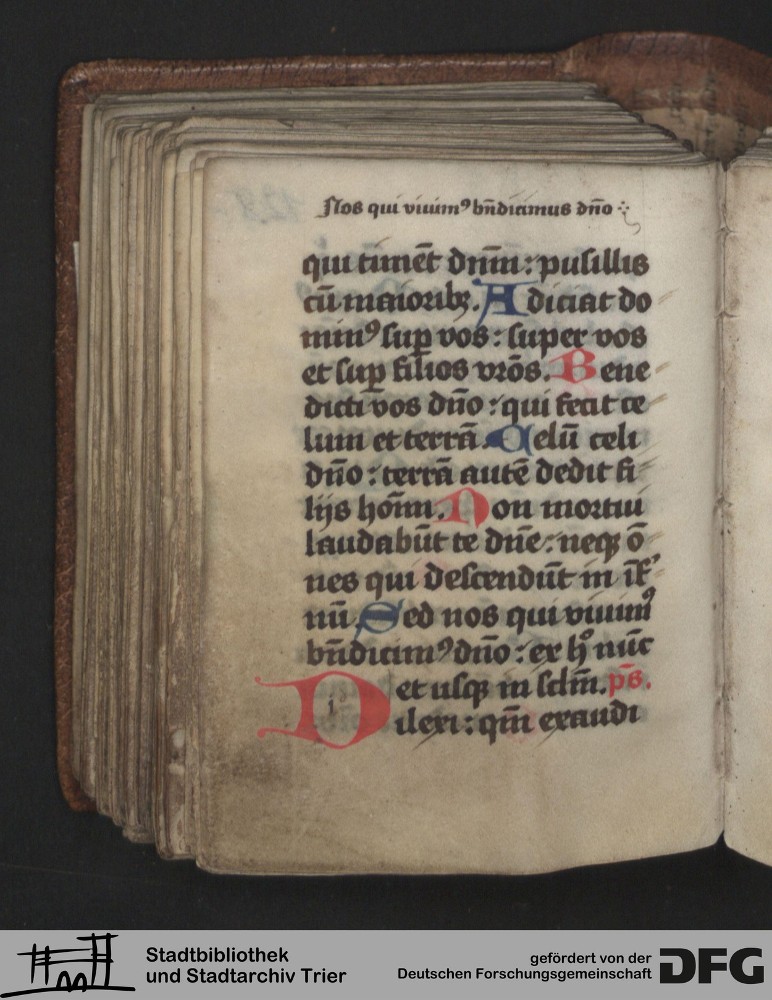 Nos qui viuimꝰ bn̄dicimus dn̄o
qui timēt dn̄m : pusillis
cū maioribꝫ. Adiciat do
minꝰ suꝑ vos : super vos
et suꝑ filios vr̄os. Bene
dicti vos dn̄o : qui fecit ce
lum et terrā. Celū celi
dn̄o : terrā autē dedit fi
lijs hoīm. Non mortui
laudabūt te dn̄e : neqꝫ ō
nes qui descendūt in īf
nū. Sed nos qui viuimꝰ
bn̄dicimꝰ dn̄o : ex hͦ nūc
et usqꝫ in sclm̄. ps̄.
Dilexi : qm̄ exaudi
Stadtbibliothek
und Stadtarchiv Trier
gefördert von der
Deutschen Forschungsgemeinschaft
DFG